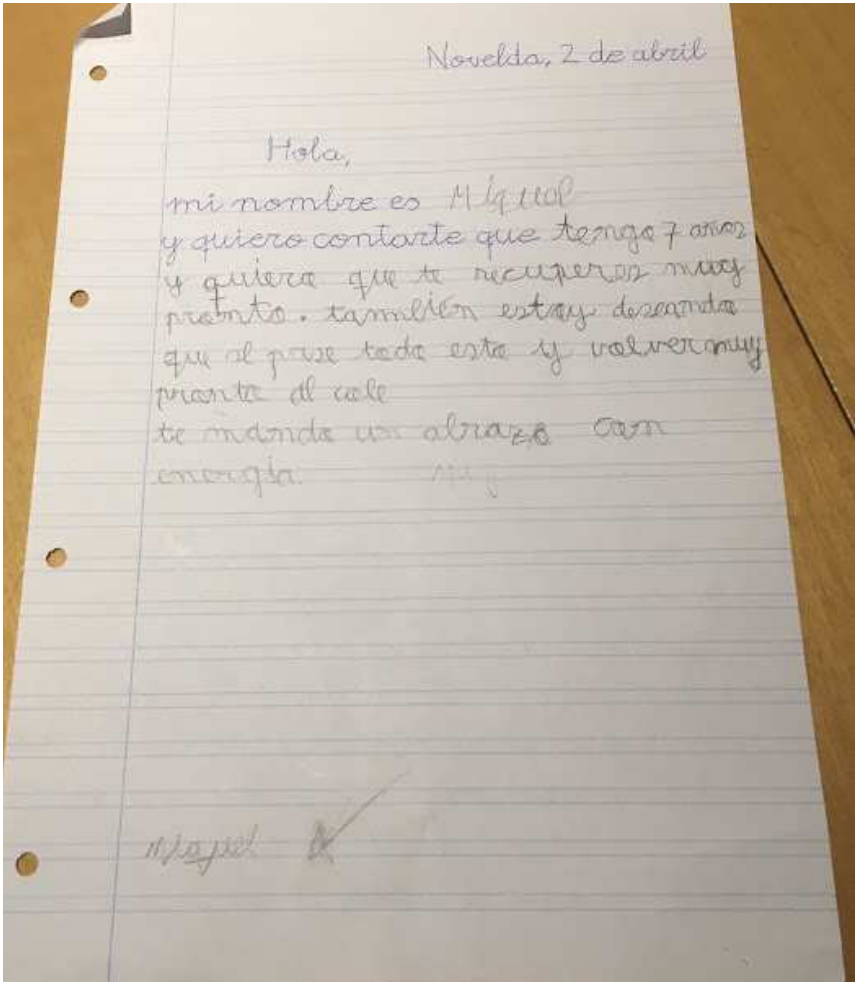 Novelda, 2 de abril
Hola,
mi nombre es Miguel
y quiero contarte que tengo 7 años
y quiero que te recuperes muy
pronto. también estoy deseando
que se pase todo esto y volver muy
pronto al cole
te mando un abrazo con
energía.
Miguel